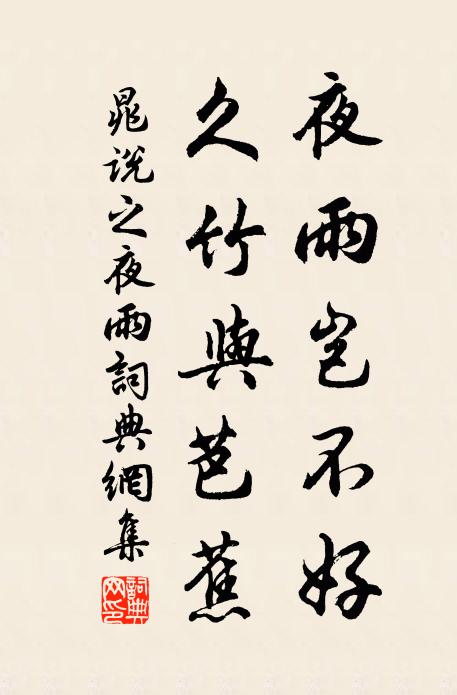 夜雨豈不好
久竹與芭蕉
晁說之夜雨詞典網集
詞典
网印